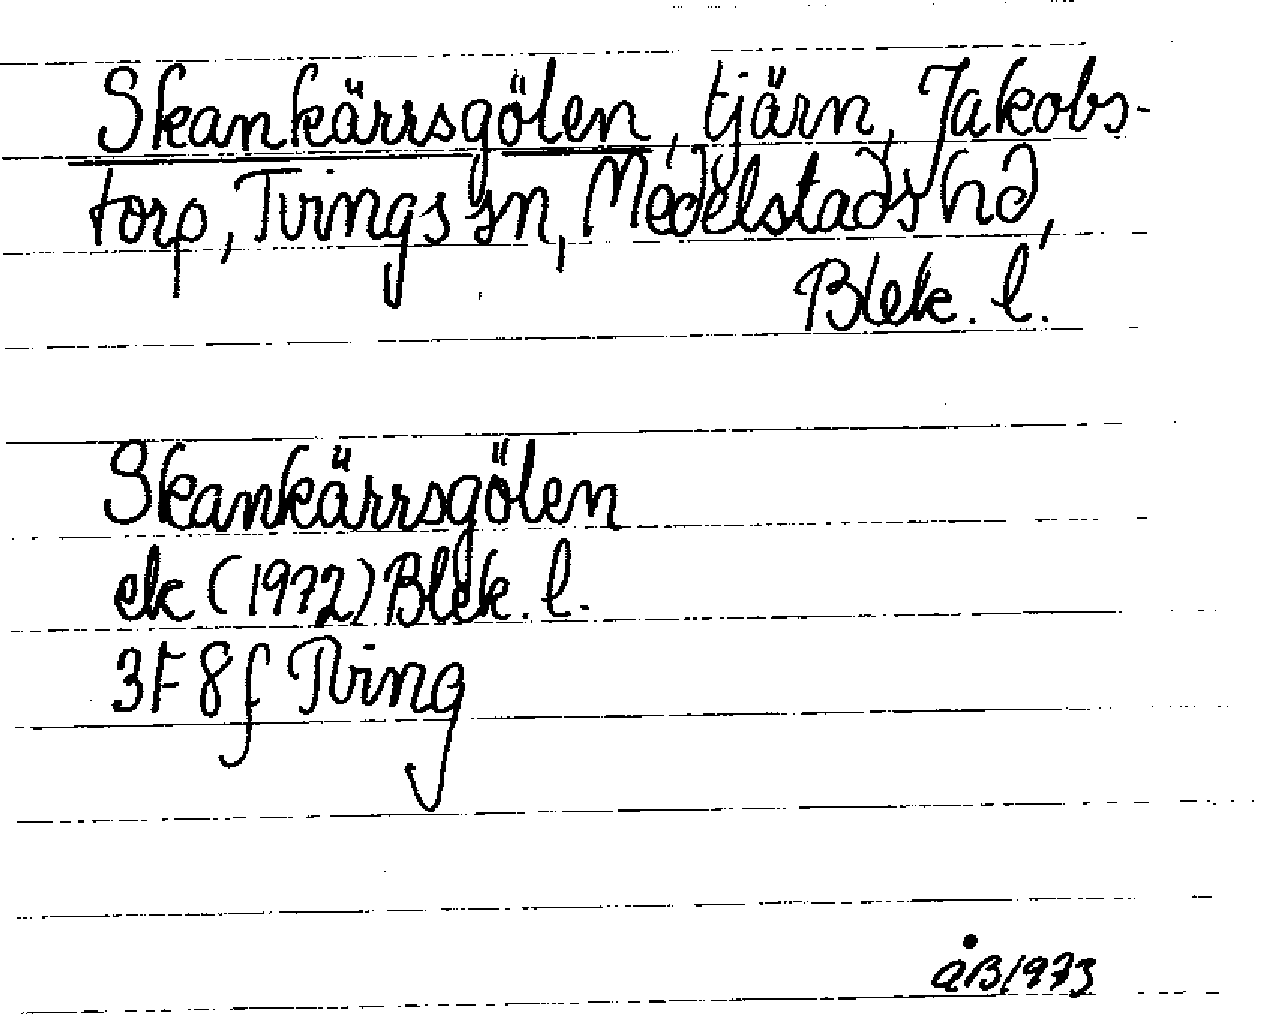 Skankärrsgölen, tjärn, Jakobs-
torp, Tvings sn, Medelstads hd,
Blek. l.
Skankärrsgölen
ek (1972) Blek. l.
3F 8f Tving
åB 1973